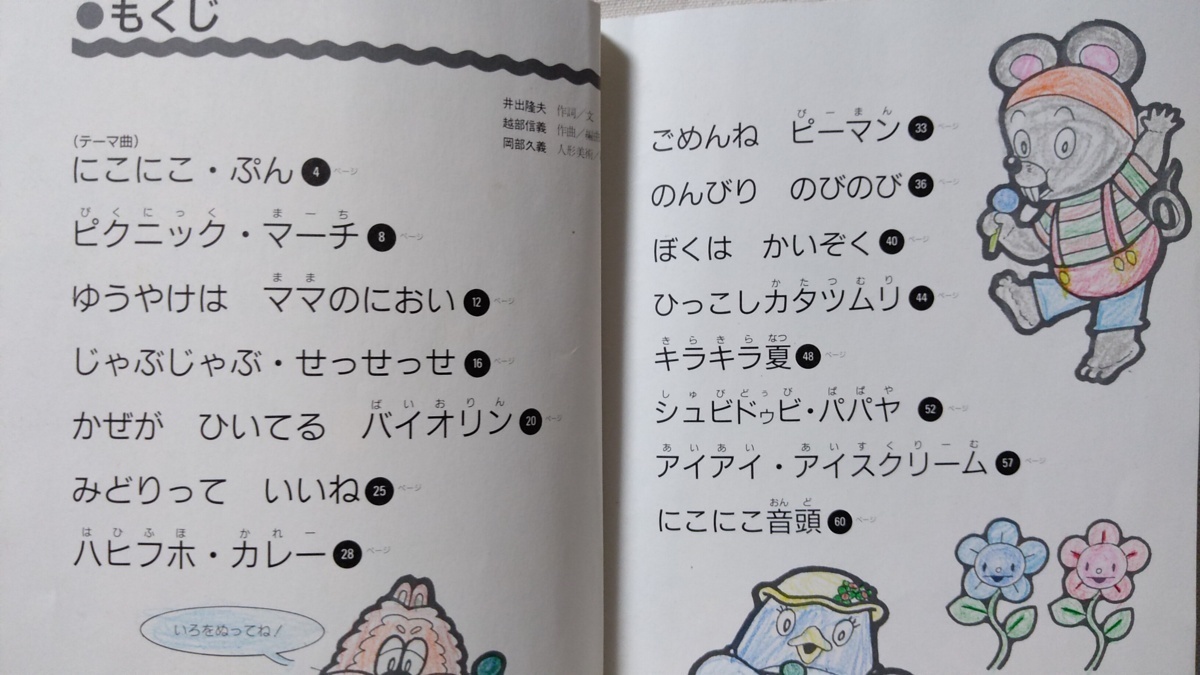 ●もくじ
井出隆夫 作詞／文
越部信義 作曲／編曲
岡部久義 人形美術／
(テーマ曲)
にこにこ・ぷん 4 ページ
ぴくにっく まーち
ピクニック・マーチ 8 ページ
まま
ゆうやけは ママのにおい 12 ページ
じゃぶじゃぶ・せっせっせ 16 ページ
ばいおりん
かぜが ひいてる バイオリン 20 ページ
みどりって いいね 25 ページ
はひふほ かれー
ハヒフホ・カレー 28 ページ
いろをぬってね!
ぴーまん
ごめんね ピーマン 33 ページ
のんびり のびのび 36 ページ
ぼくは かいぞく 40 ページ
かたつむり
ひっこしカタツムリ 44 ページ
きらきらなつ
キラキラ夏 48 ページ
しゅびどぅび ぱぱや
シュビドゥビ・パパヤ 52 ページ
あいあい あいすくりーむ
アイアイ・アイスクリーム 57 ページ
おんど
にこにこ音頭 60 ページ